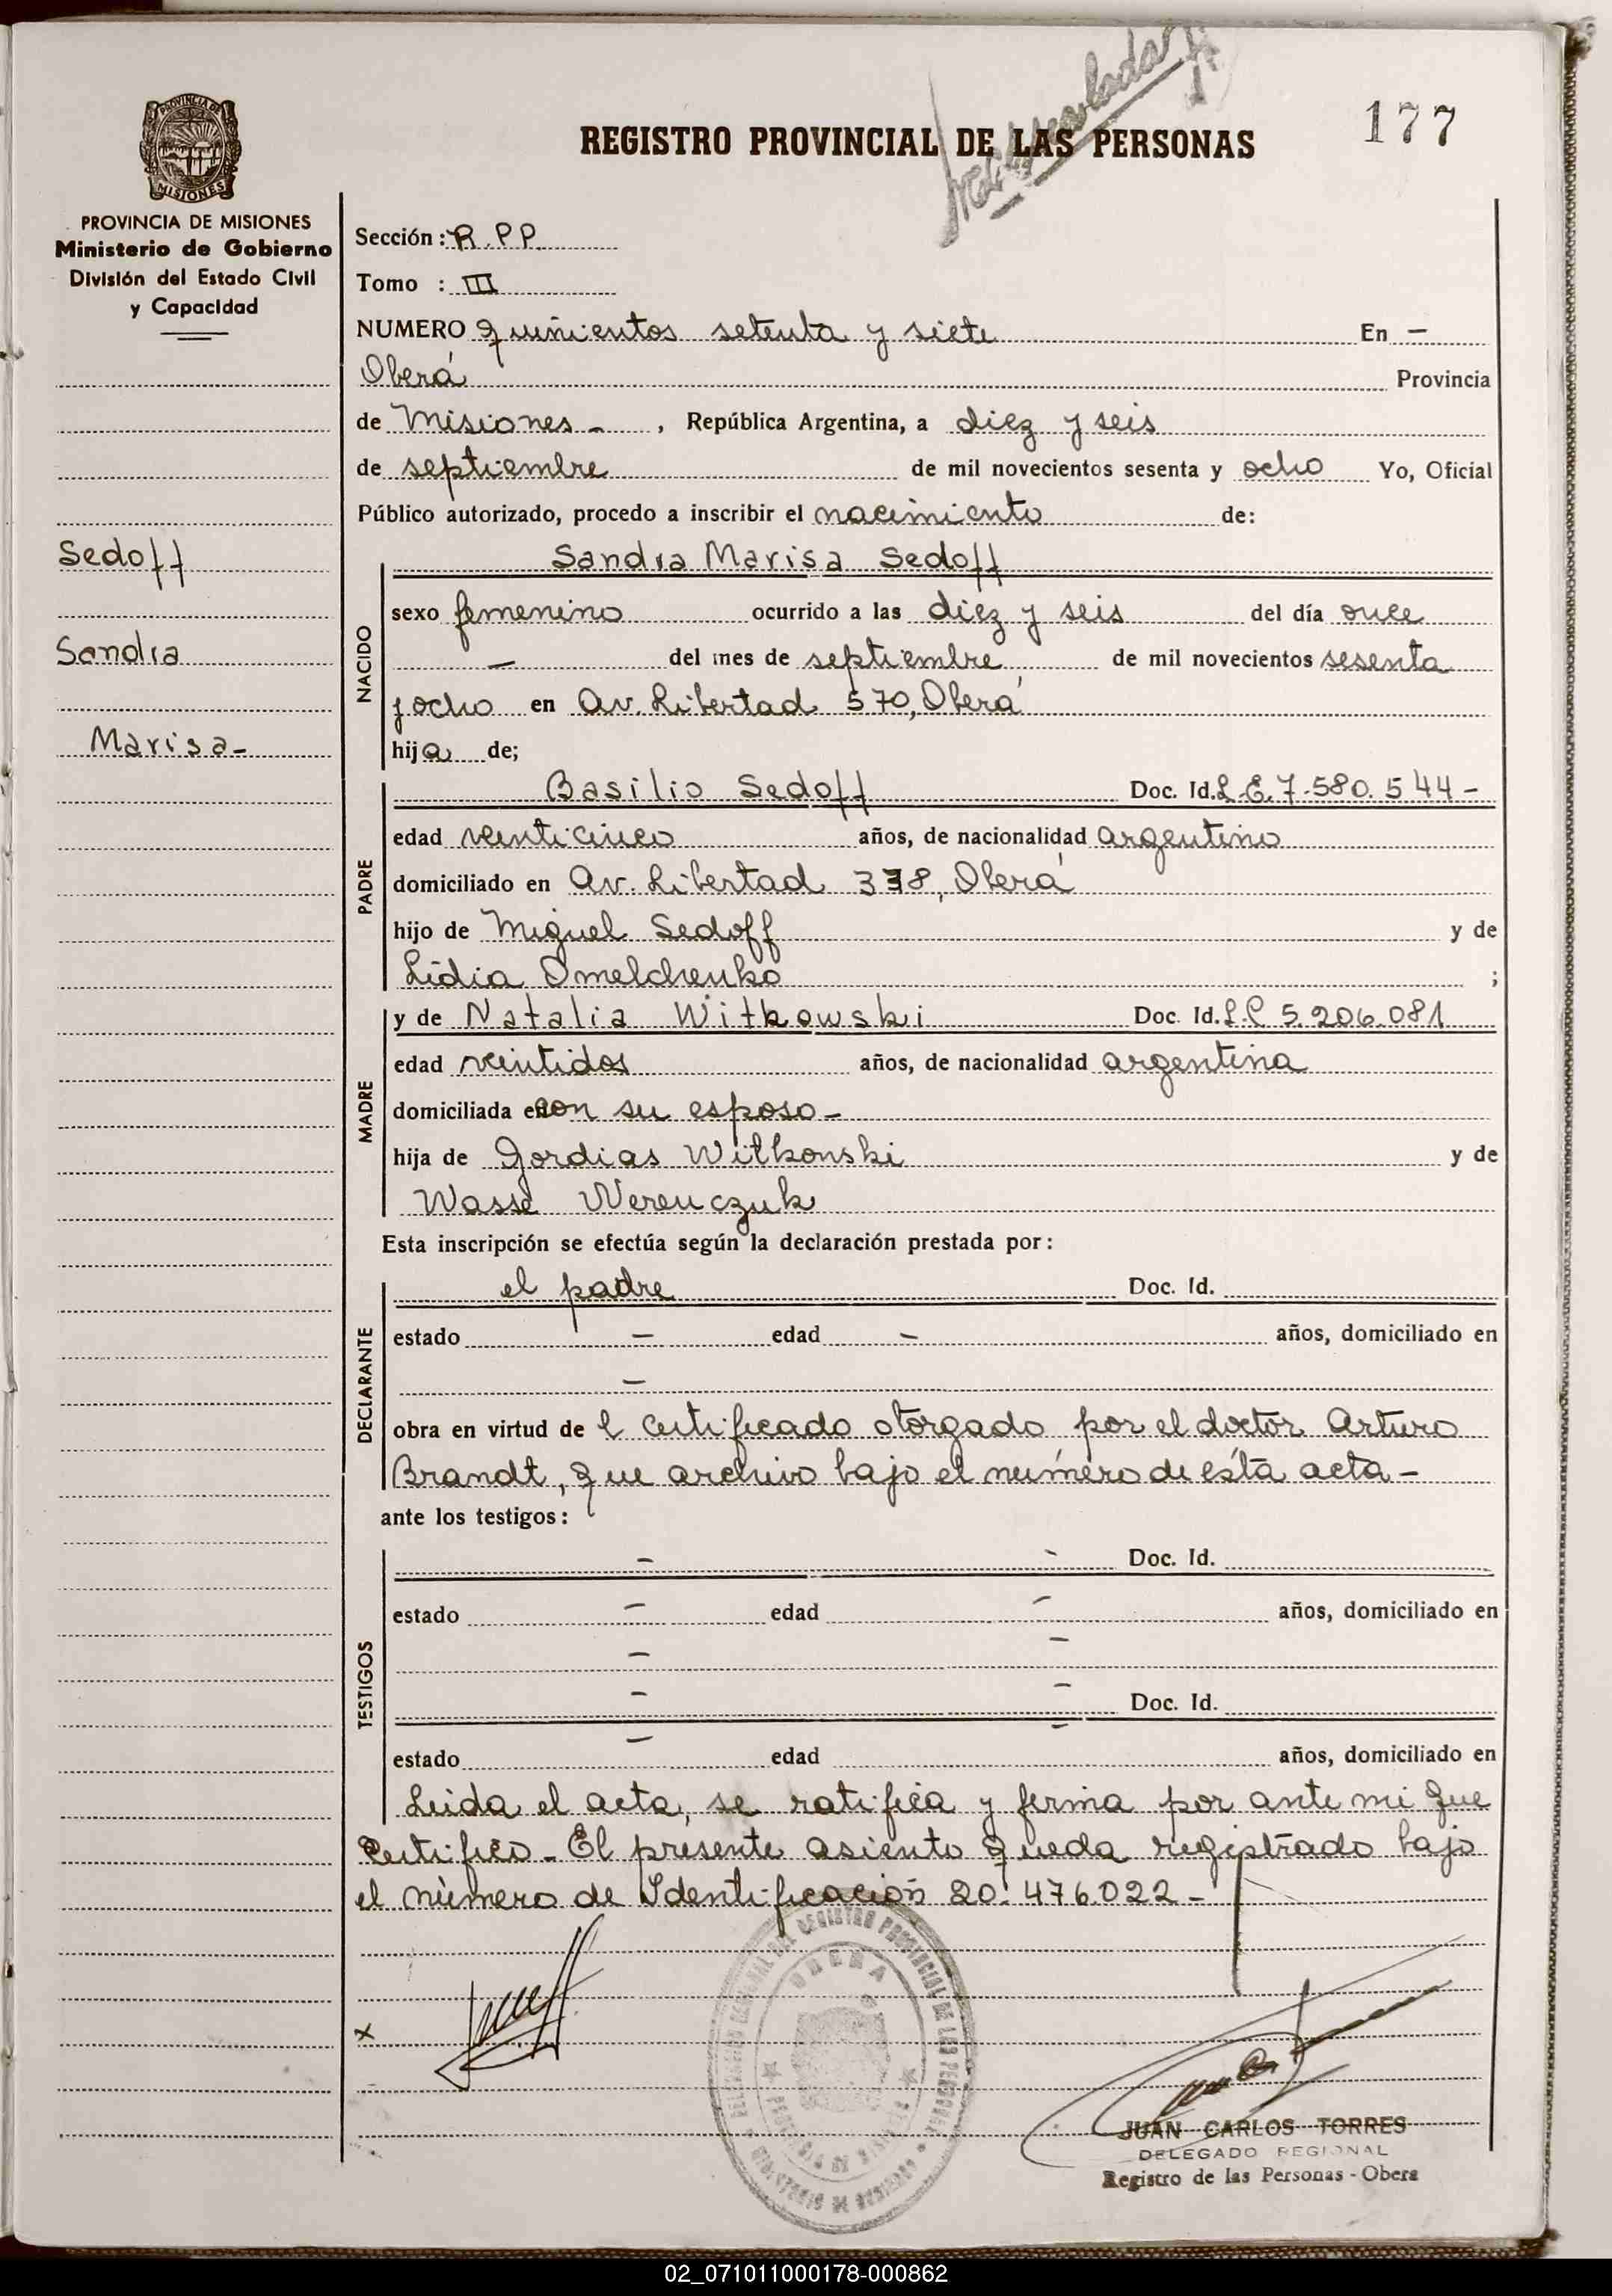 177
REGISTRO PROVINCIAL DE LAS PERSONAS
PROVINCIA DE MISIONES
PROVINCIA DE MISIONES
Ministerio de Gobierno
División del Estado Civil
y Capacidad
Sedoff
Sandra
Marisa-
Sección: R.P.P.
Tomo : III
NUMERO quinientos setenta y siete En -
Oberá Provincia
de Misiones - , República Argentina, a diez y seis
de septiembre de mil novecientos sesenta y ocho Yo, Oficial
Público autorizado, procedo a inscribir el nacimiento de:
NACIDO
Sandra Marisa Sedoff
sexo femenino ocurrido a las diez y seis del día once
- del mes de septiembre de mil novecientos sesenta
y ocho en Av. Libertad 570, Oberá
hija de;
PADRE
Basilio Sedoff Doc. Id. L.E. 7.580.544-
edad venticinco años, de nacionalidad argentino
domiciliado en Av. Libertad 338, Oberá
hijo de Miguel Sedoff y de
Lidia Omelchenko ;
MADRE
y de Natalia Witkowski Doc. Id. L.C 5.206.081
edad veintidos años, de nacionalidad argentina
domiciliada en con su esposo-
hija de Gordias Witkonski y de
Wasse Werenczuk
Esta inscripción se efectúa según la declaración prestada por:
DECLARANTE
el padre Doc. Id.
estado - edad - años, domiciliado en
-
obra en virtud de l certificado otorgado por el doctor Arturo
Brandt, que archivo bajo el número de ésta acta-
ante los testigos:
TESTIGOS
- - Doc. Id.
estado - edad - años, domiciliado en
- -
- - Doc. Id.
estado - edad - años, domiciliado en
Leida el acta, se ratifica y firma por ante mi que
certifico - El presente asiento queda registrado bajo
el número de Identificación 20.476.022-
x
OBERA
PROVINCIA DE MISIONES
JUAN CARLOS TORRES
DELEGADO REGIONAL
Registro de las Personas - Obera
02_071011000178-000862